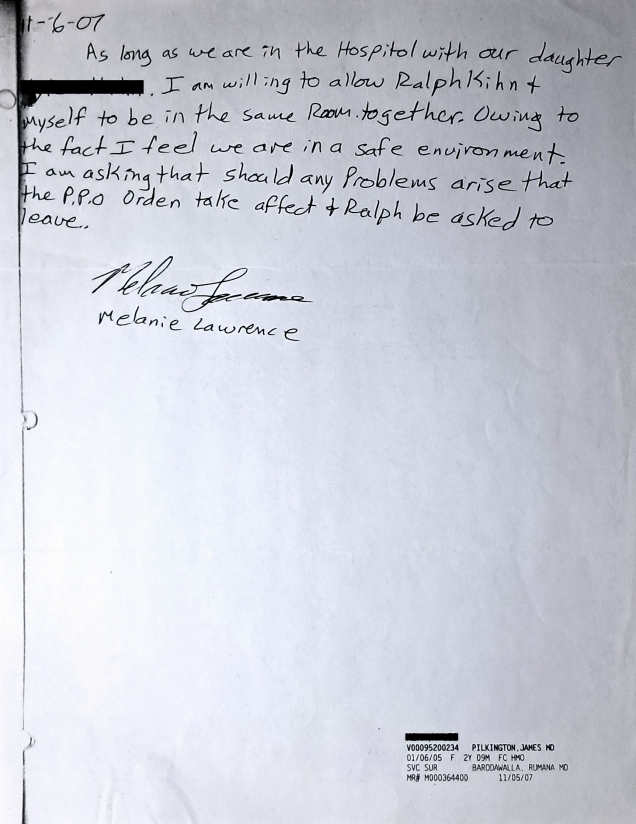 11-6-07
As long as we are in the Hospitol with our daughter
. I am willing to allow Ralph Kihn +
myself to be in the same Room together. Owing to
the fact I feel we are in a safe environment.
I am asking that should any Problems arise that
the P.P.O Orden take affect & Ralph be asked to
leave.
Melanie Lawrence
Melanie Lawrence
V00095200234 PILKINGTON, JAMES MD
01/06/05 F 2Y 09M FC HMO
SVC SUR BARODAWALLA, RUMANA MD
MR# M000364400 11/05/07